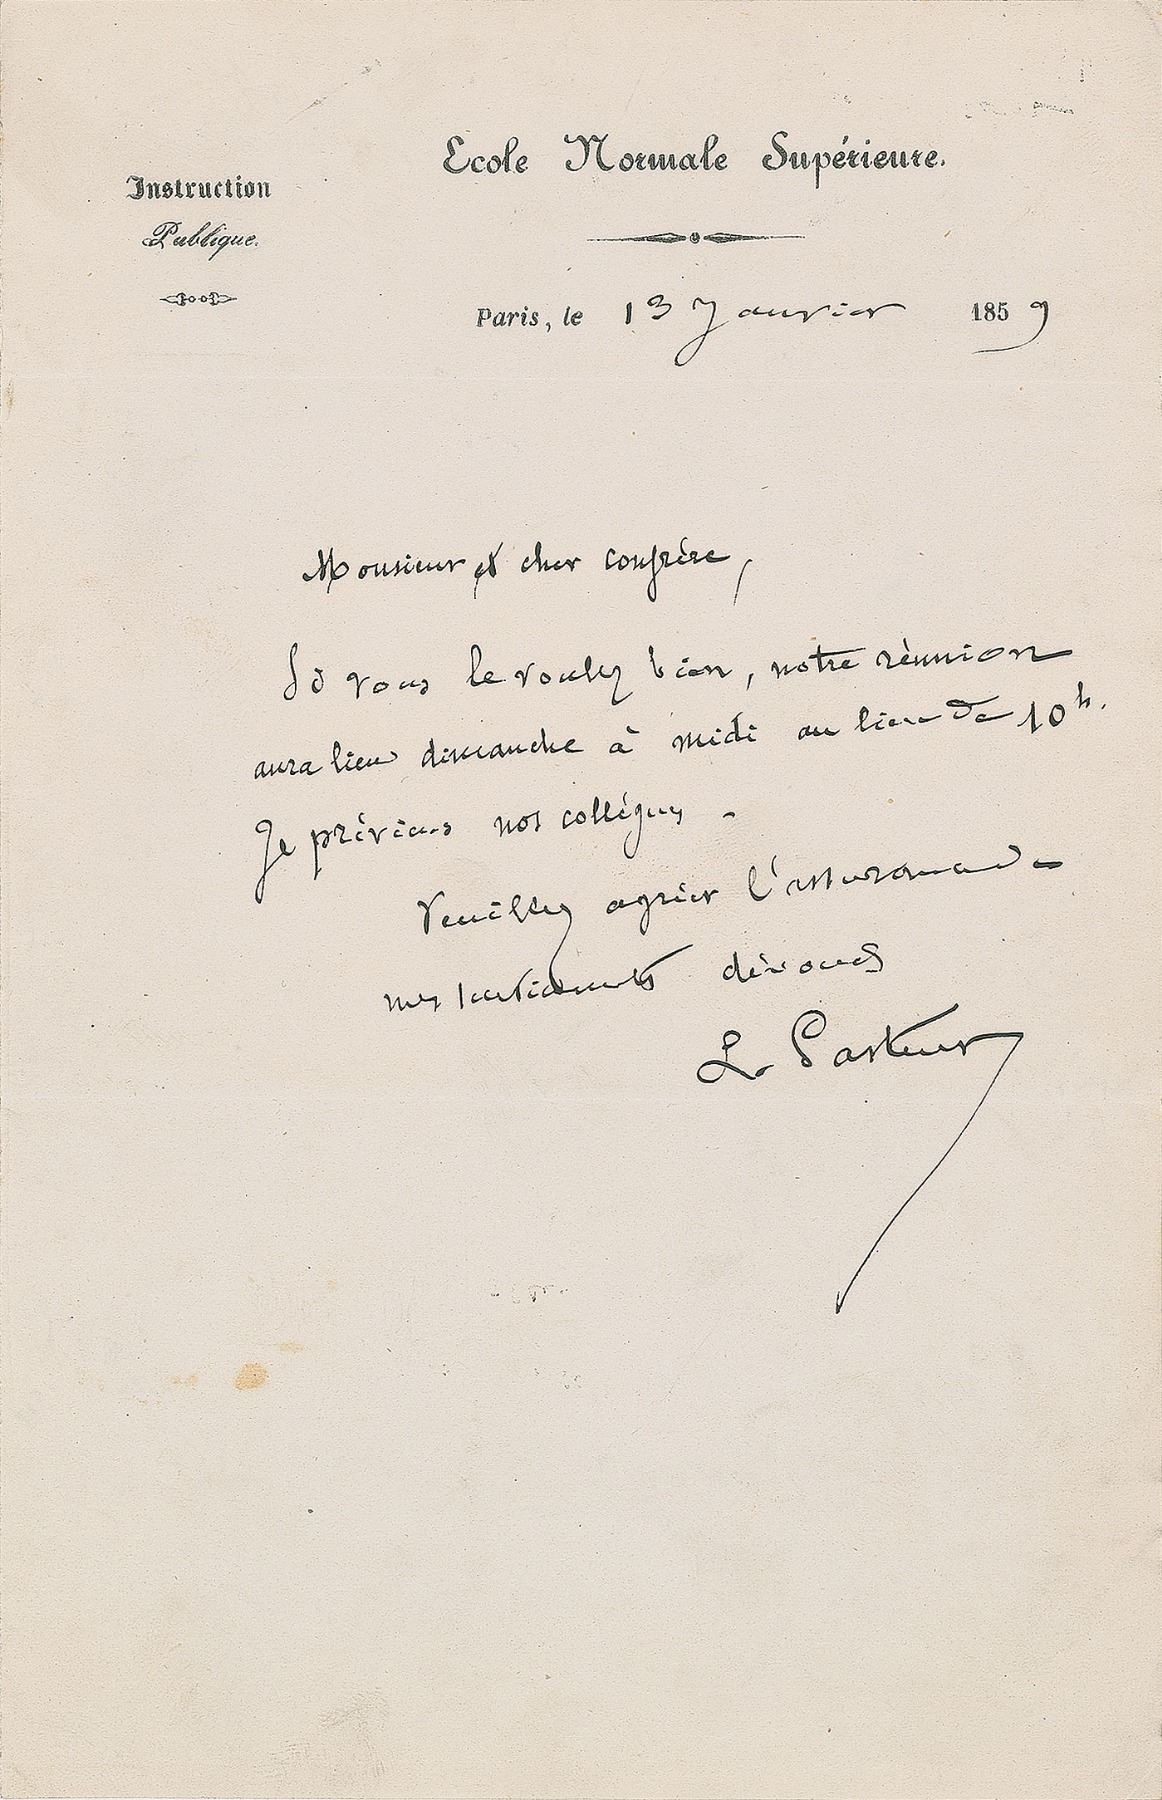 Ecole Normale Supérieure.
Instruction
Publique.
Paris, le 13 Janvier 1859
Monsieur et cher confrère,
Si vous le voulez bien, notre réunion
aura lieu dimanche à midi au lieu de 10 h.
Je préviens nos collègues.
Veuillez agréer l'assurance de
mes sentiments dévoués
L. Pasteur